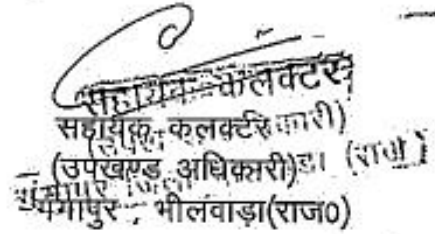 सहायक कलक्टर
सहायक कलक्टर
(उपखण्ड अधिकारी)
गंगापुर भीलवाड़ा(राज0)